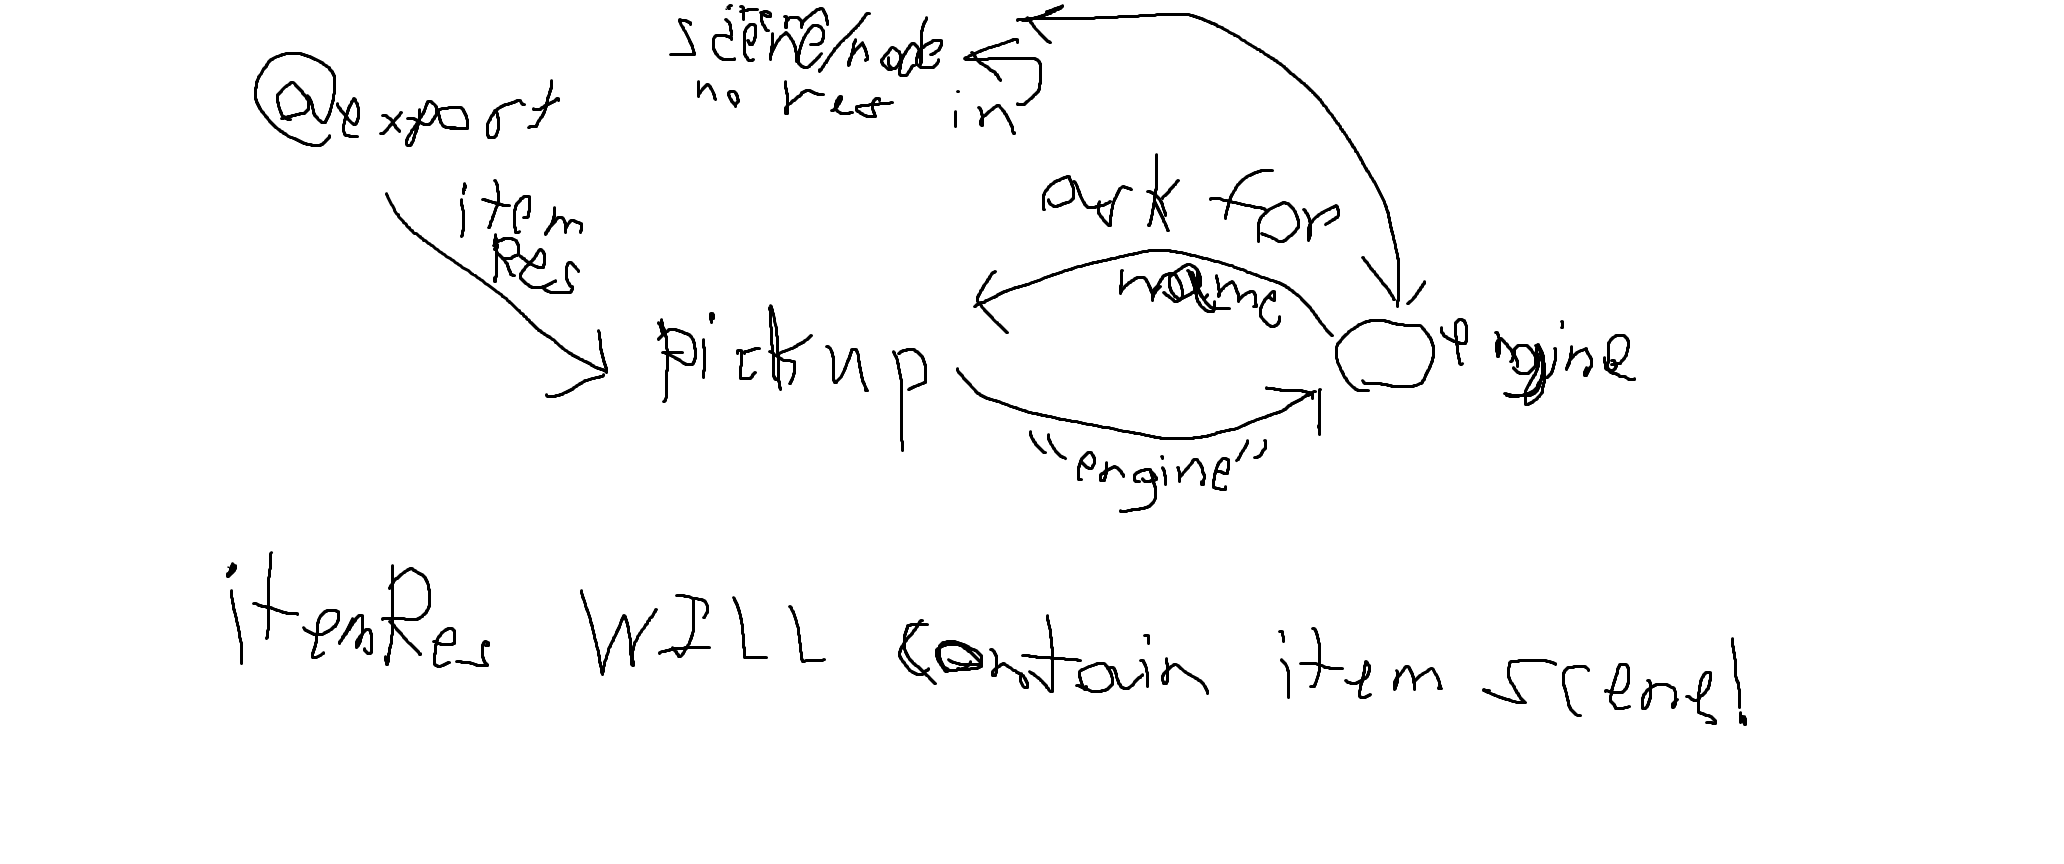 item
scene/node
no res in
@export
item
Res
ask for
name
pickup
engine
"engine"
itemRes WILL contain item scene!